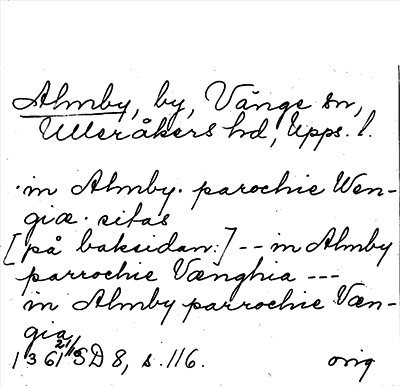 Almby, by, Vänge sn,
Ulleråkers hd, Upps. l.
·in Almby· parochie Wen-
giæ· sitas
[på baksidan:] -- in Almby
parrochie Vænghia ---
in Almby parrochie Væn-
gia
1361 21/10 SD 8, s. 116. orig